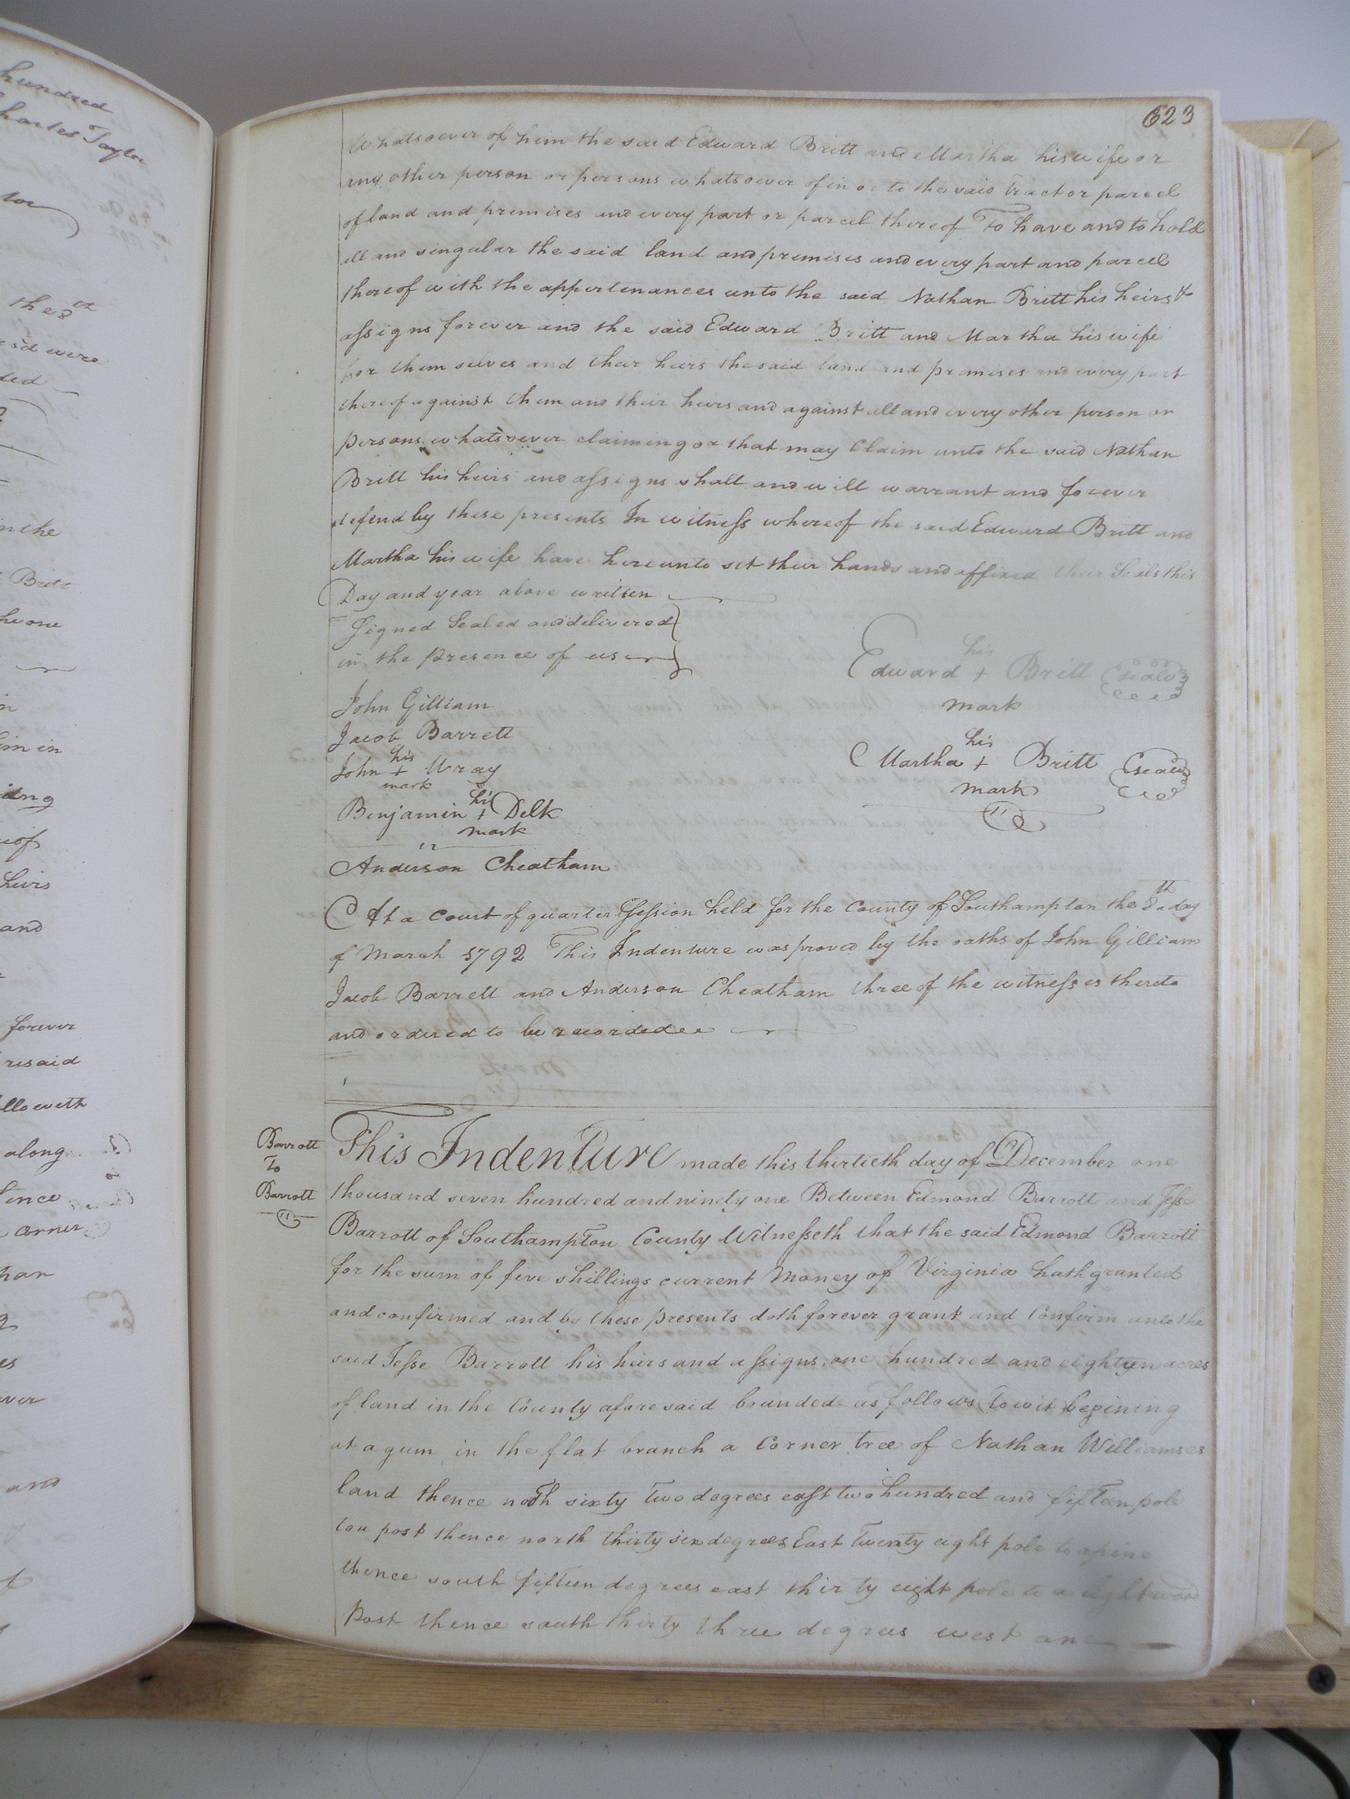 hundred
Charles Taylor
the 8th
ded
in the
Britt
the one
him in
heirs
and
forever
resaid
lloweth
along
Since
corner
and
623
Whatsoever of him the said Edward Britt and Martha his wife or
any other person or persons whatsoever of in or to the said tract or parcel
of land and premises and every part or parcel thereof To have and to hold
all and singular the said land and premises and every part and parcel
thereof with the appertenances unto the said Nathan Britt his heirs &
assigns forever and the said Edward Britt and Martha his wife
for them selves and their heirs the said land and premises and every part
thereof against them and their heirs and against all and every other person or
persons whatsoever claiming or that may Claim unto the said Nathan
Britt his heirs and assigns shall and will warrant and forever
defend by these presents In witness whereof the said Edward Britt and
Martha his wife have hereunto set their hands and affixed their Seals this
Day and year above written
Signed Sealed and delivered
in the presence of us
John Gilliam
Jacob Barrett
John his + mark Wray
Benjamin his + mark Delk
Anderson Cheatham
Edward his + mark Britt (seal)
Martha his + mark Britt (seal)
At a Court of quarter Session held for the County of Southampton the 8th day
of March 1792 This Indenture was proved by the oaths of John Gilliam
Jacob Barrett and Anderson Cheatham three of the witnesses thereto
and ordered to be recorded
Barrott
To
Barrott
This Indenture made this thirtieth day of December one
thousand seven hundred and ninety one Between Edmond Barrott and Jesse
Barrott of Southampton County Witnesseth that the said Edmond Barrott
for the sum of five shillings current Money of Virginia hath granted
and confirmed and by these presents doth forever grant and Confirm unto the
said Jesse Barrott his heirs and assigns one hundred and eighteen acres
of land in the County aforesaid bounded as follows, to wit begining
at a gum in the flat branch a Corner tree of Nathan Williamses
land thence noth sixty Two degrees east two hundred and fifteen pole
to a post thence north thirty six degrees East Twenty eight pole to a pine
thence south fifteen degrees east thirty eight pole to a lightwood
Post thence south thirty three degrees west one